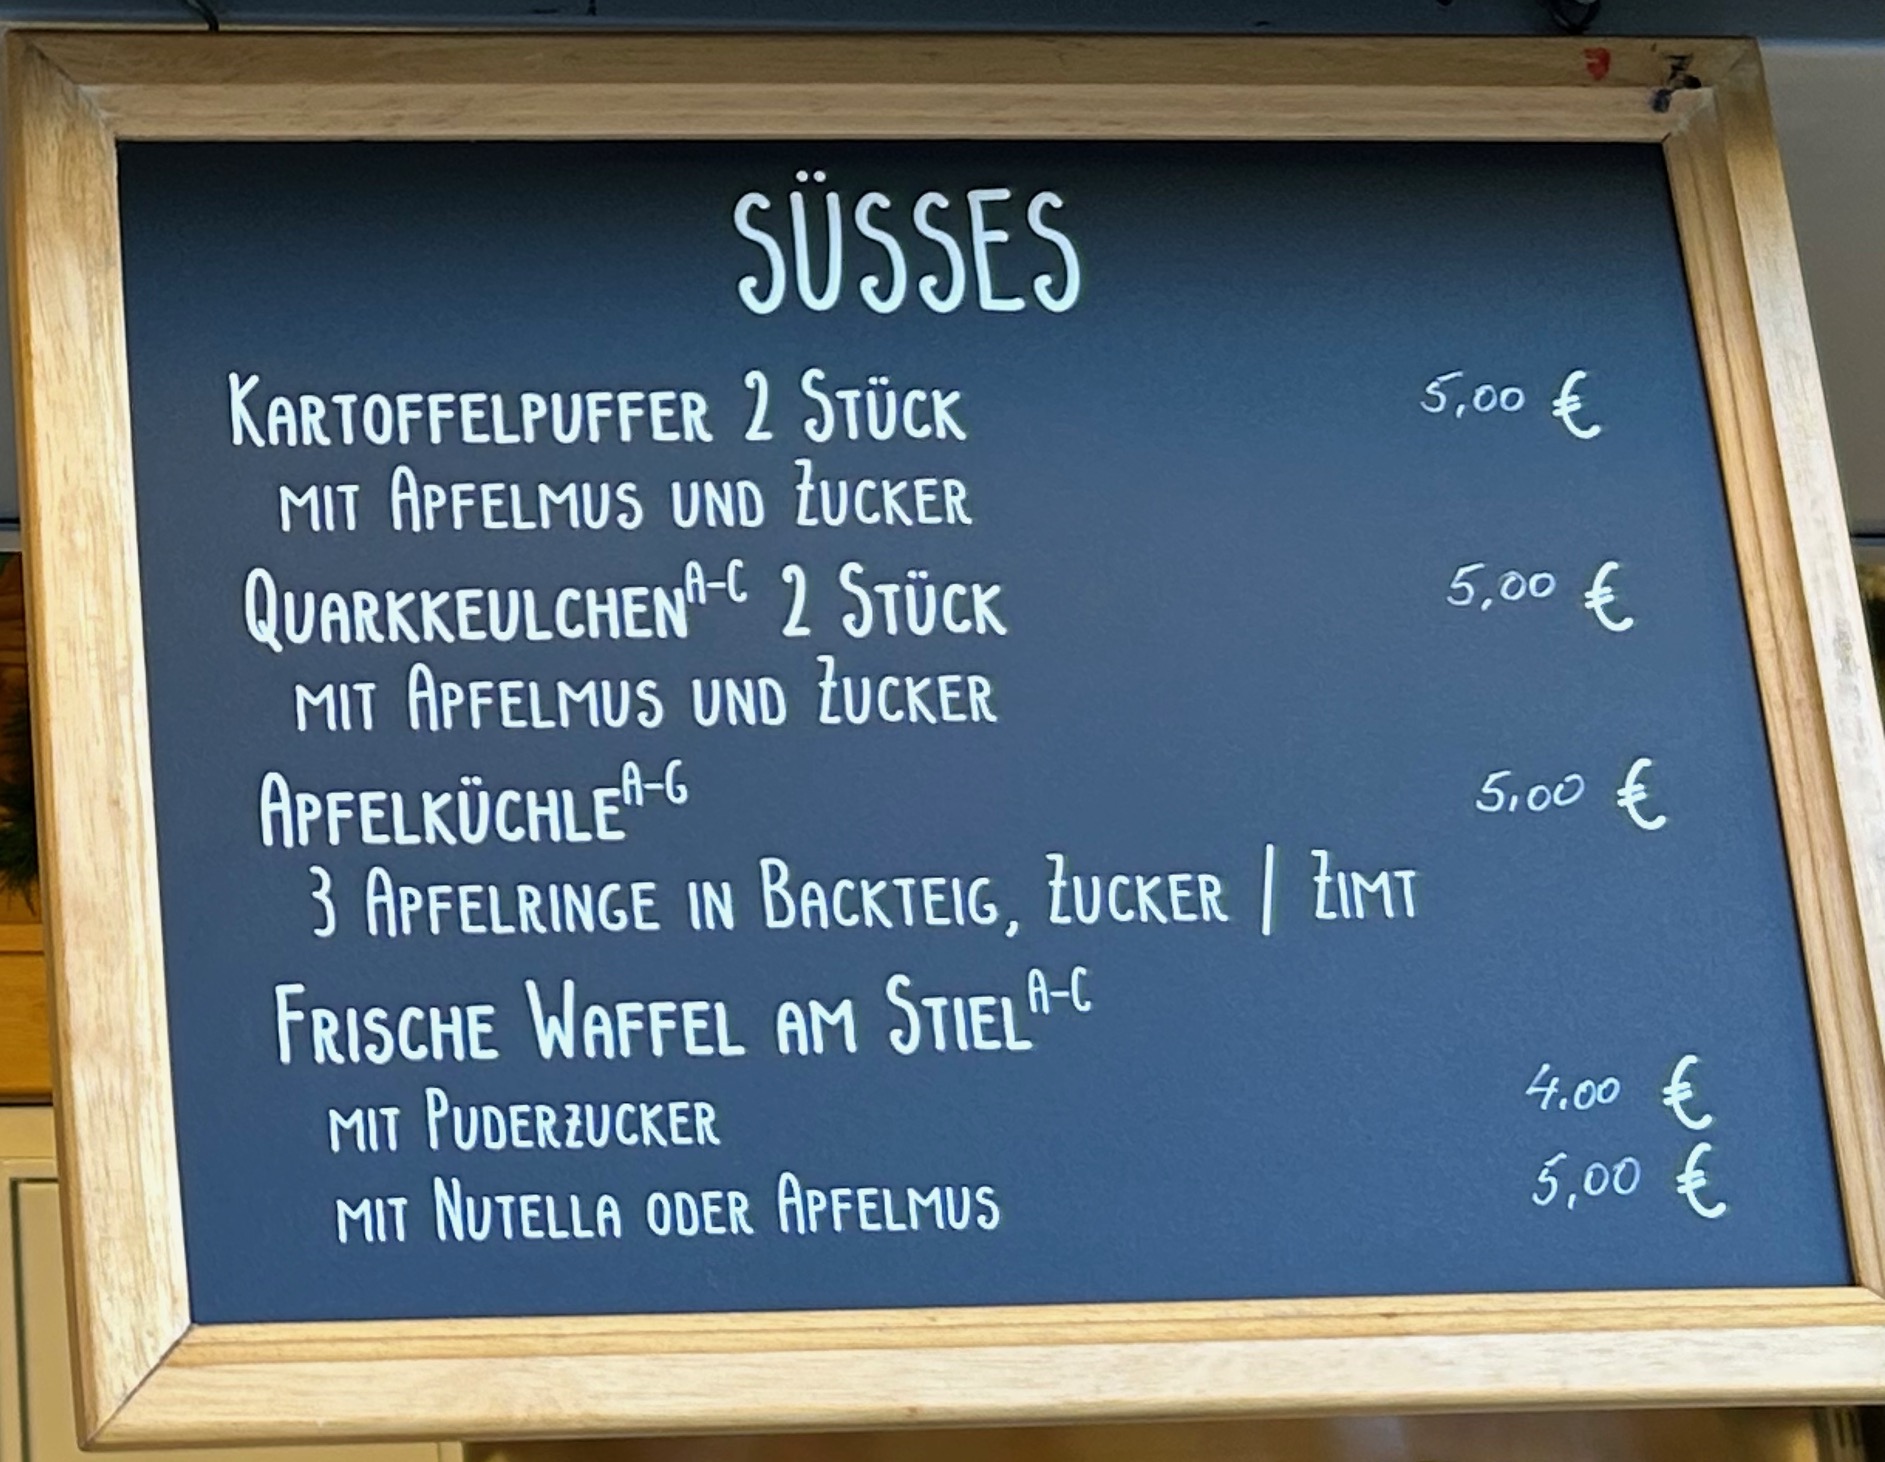 SÜSSES
KARTOFFELPUFFER 2 STÜCK 5,00 €
MIT APFELMUS UND ZUCKER
QUARKKEULCHEN A-C 2 STÜCK 5,00 €
MIT APFELMUS UND ZUCKER
APFELKÜCHLE A-G 5,00 €
3 APFELRINGE IN BACKTEIG, ZUCKER | ZIMT
FRISCHE WAFFEL AM STIEL A-C
MIT PUDERZUCKER 4.00 €
MIT NUTELLA ODER APFELMUS 5,00 €